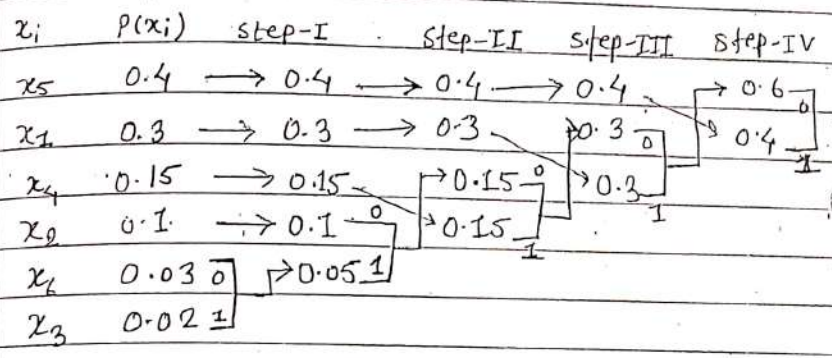 xᵢ P(xᵢ) step-I Step-II Step-III Step-IV
x₅ 0.4 → 0.4 → 0.4 → 0.4 → 0.6 0
x₁ 0.3 → 0.3 → 0.3 0.3 0 0.4 1
x₄ 0.15 → 0.15 0.15 0 0.3 1
x₂ 0.1 → 0.1 0 0.15 1
x₆ 0.03 0 → 0.05 1
x₃ 0.02 1